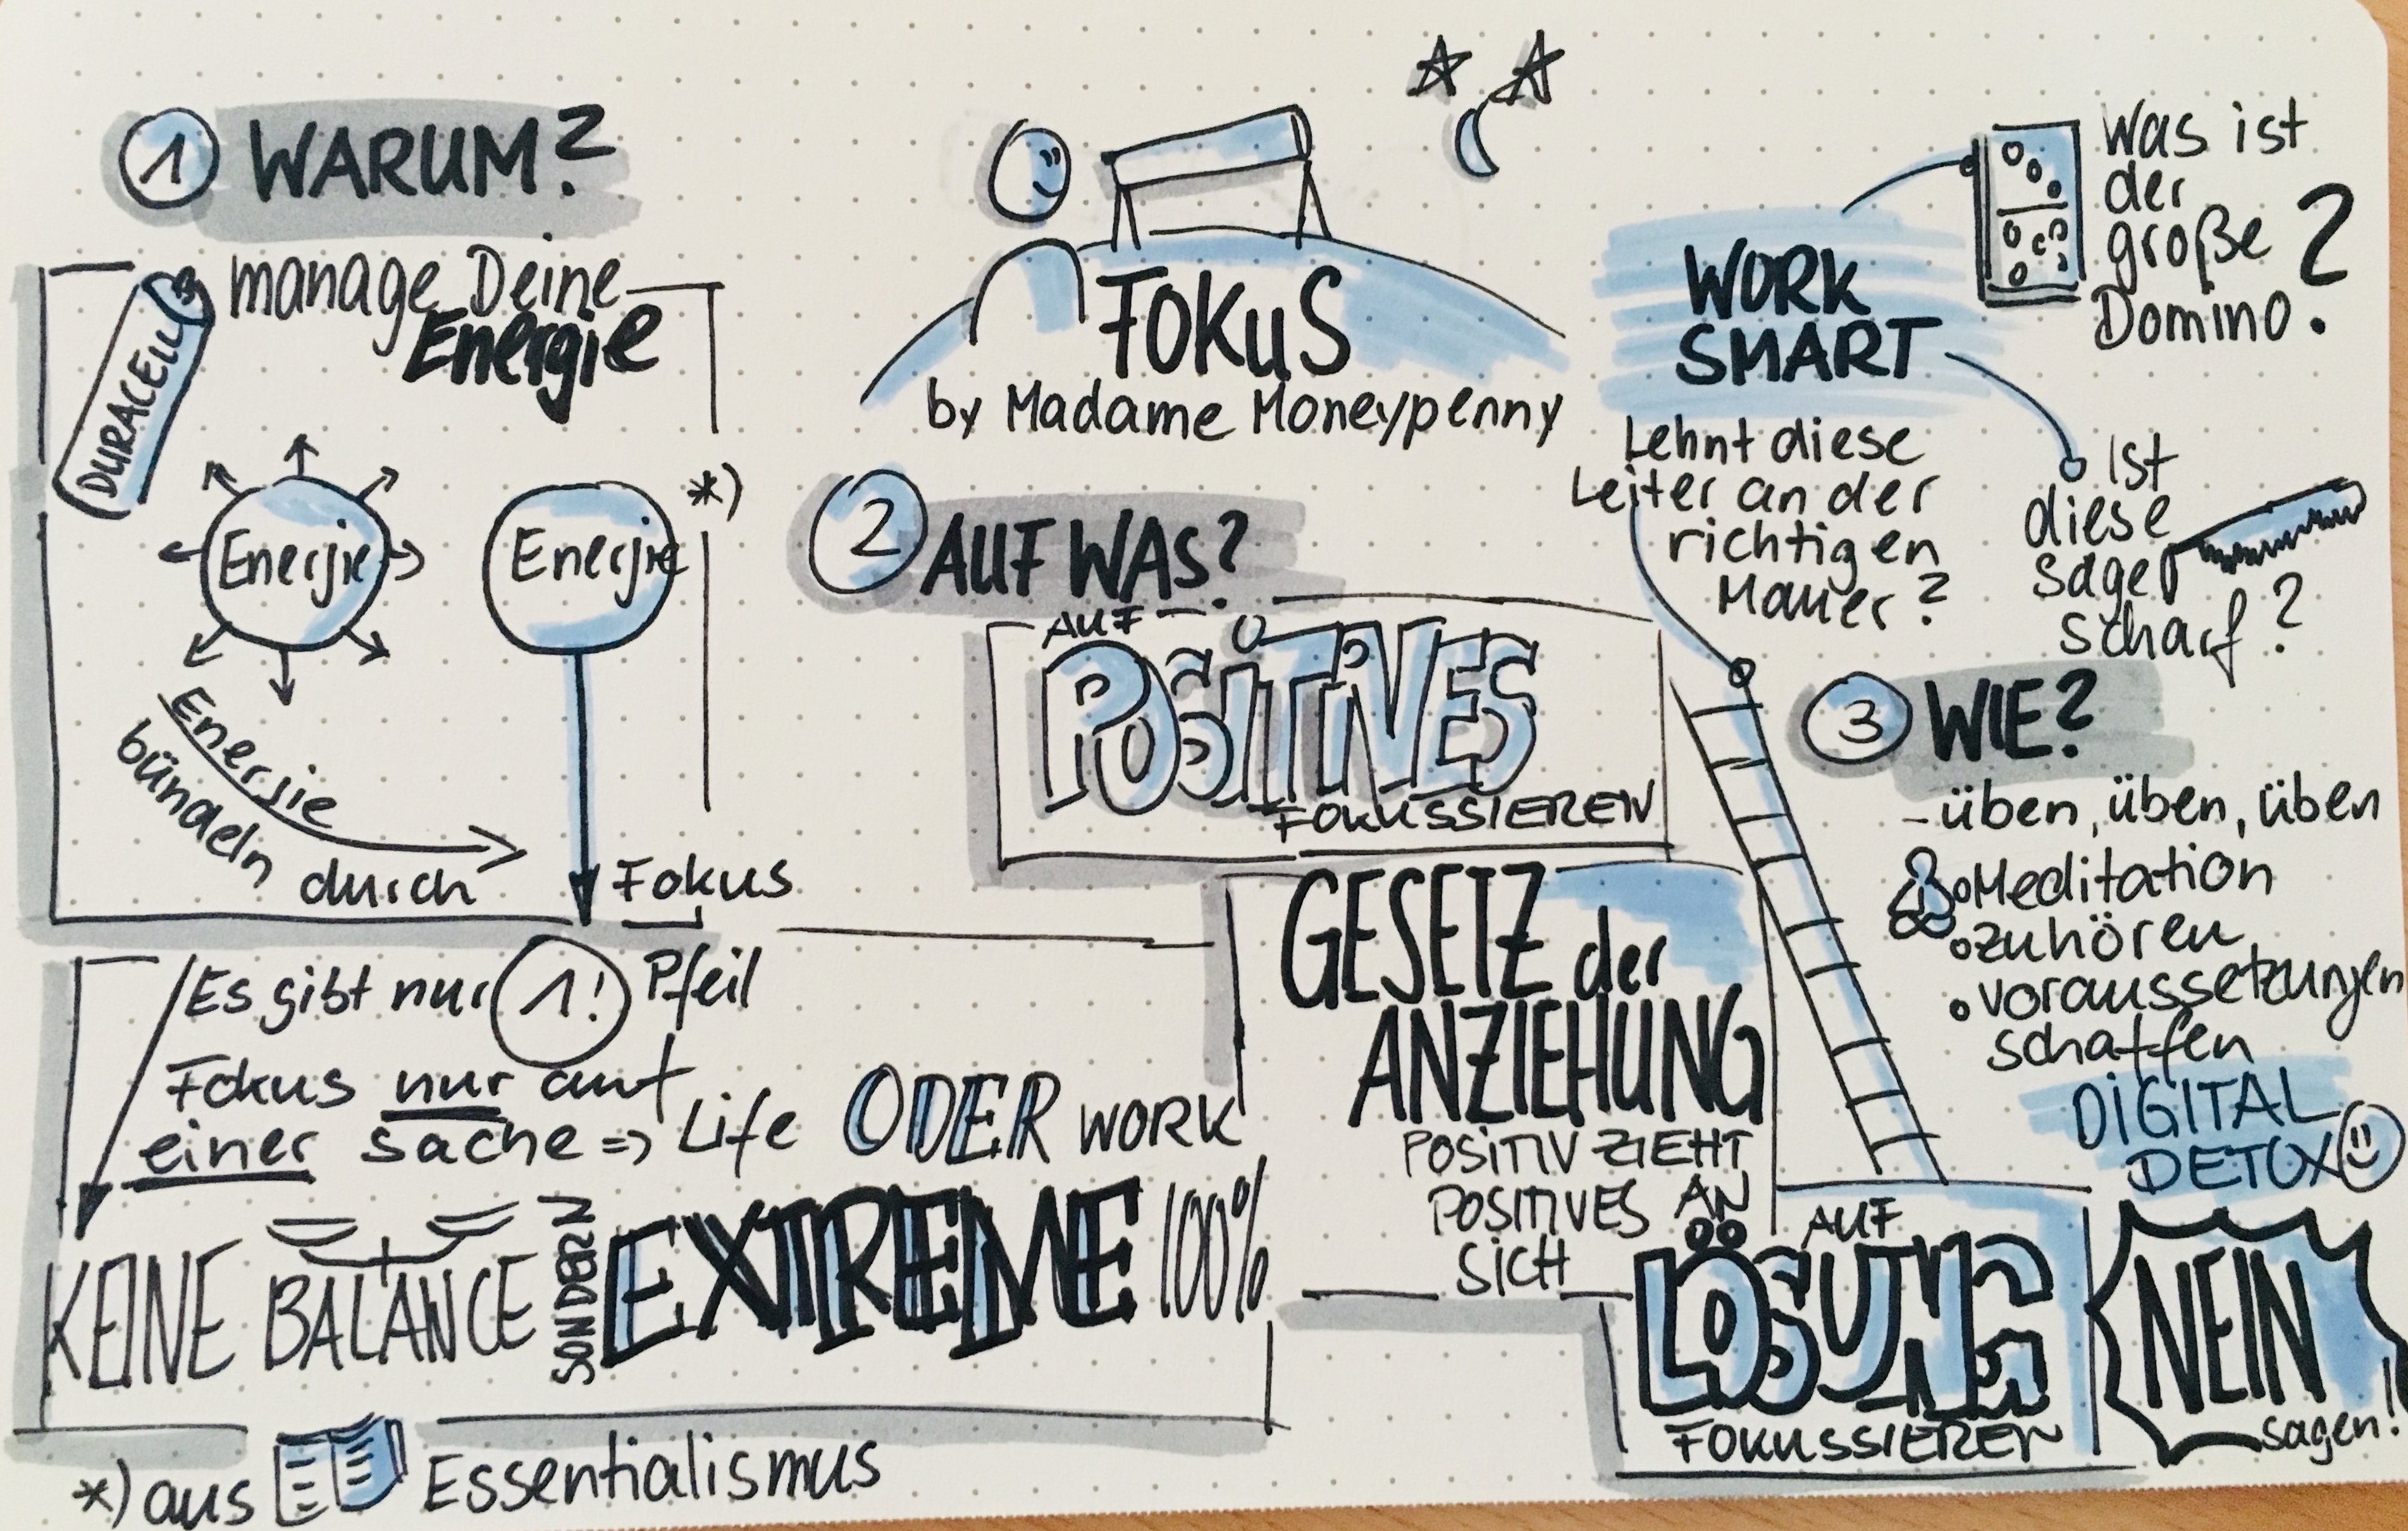 FOKUS
by Madame Moneypenny
1 WARUM?
manage Deine
Energie
DURACELL
Energie
Energie *)
Energie
bündeln
durch
Fokus
Es gibt nur 1! Pfeil
Fokus nur auf
einer Sache => Life ODER WORK
KEINE BALANCE SONDERN EXTREME 100%
*) aus Essentialismus
2 AUF WAS?
AUF
POSITIVES
FOKUSSIEREN
GESETZ der
ANZIEHUNG
POSITIV ZIEHT
POSITIVES AN
SICH
AUF
LÖSUNG
FOKUSSIEREN
WORK
SMART
Was ist
der
große
Domino?
Lehnt diese
Leiter an der
richtigen
Mauer?
Ist
diese
Säge
scharf?
3 WIE?
- üben, üben, üben
Meditation
zuhören
voraussetzungen
schaffen
DIGITAL
DETOX
NEIN
sagen!